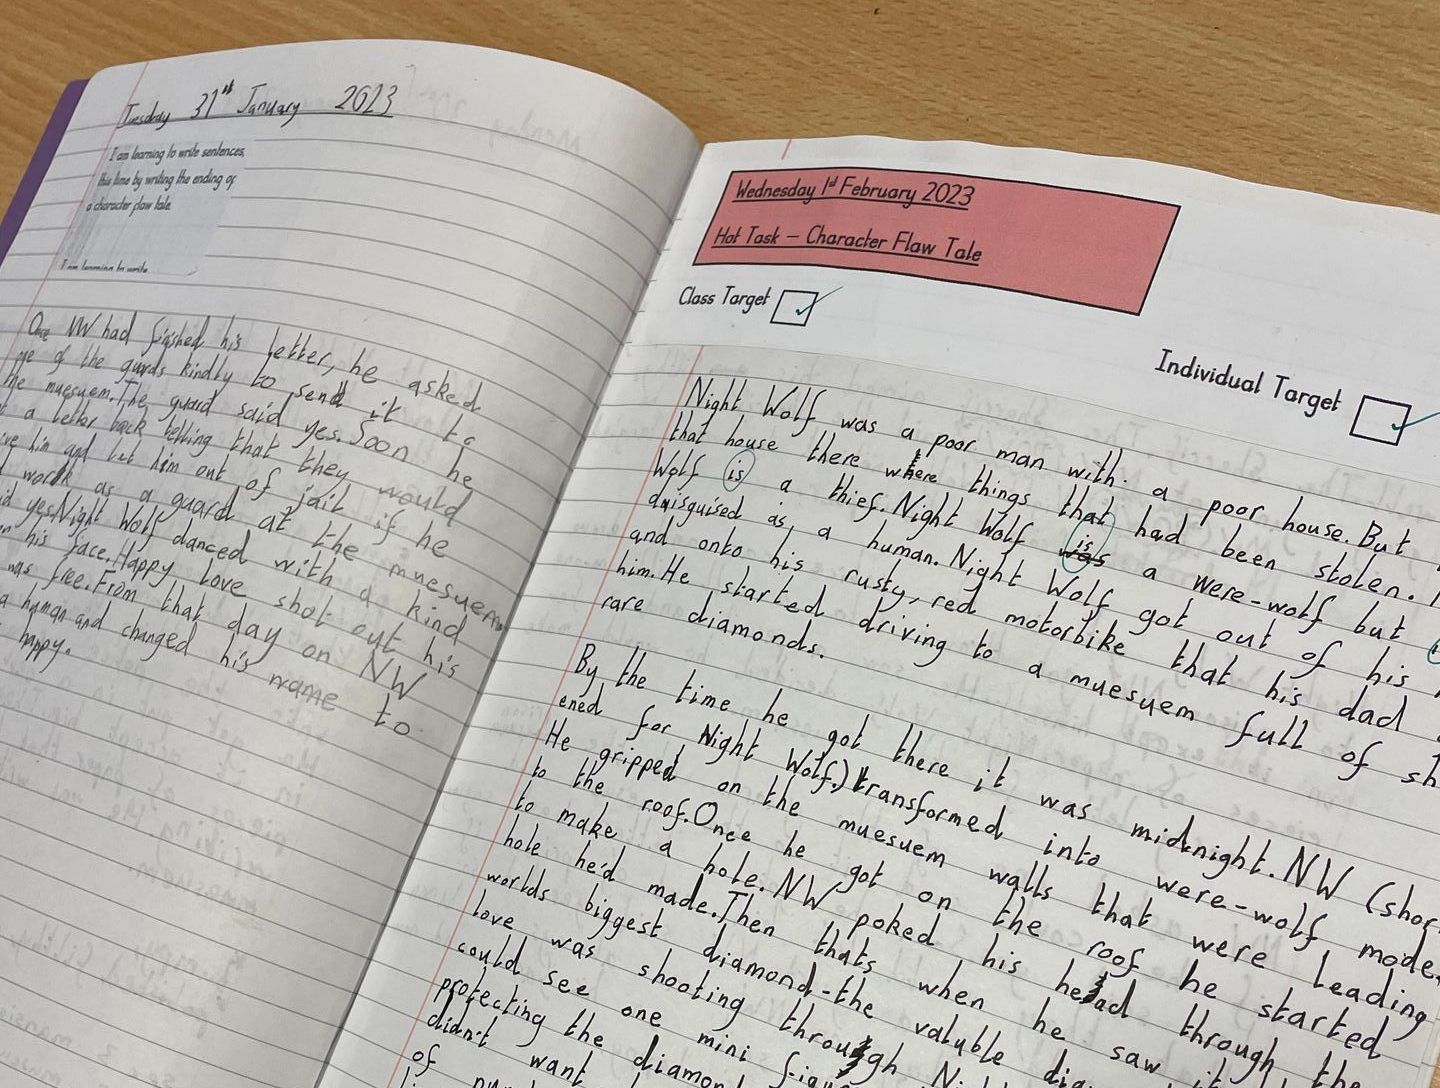 Tuesday 31st January 2023
I am learning to write sentences,
this time by writing the ending of
a character flaw tale.
I am learning to write
Once NW had finished his letter, he asked
one of the guards kindly to send it to
the muesuem. The guard said yes. Soon he
a letter back telling that they would
him and let him out of jail if he
work as a guard at the muesuem.
yes. Night Wolf danced with a kind
his face. Happy love shot out his
was free. From that day on NW
a human and changed his name to
happy.
Wednesday 1st February 2023
Hot Task – Character Flaw Tale
Class Target
Individual Target
Night Wolf was a poor man with a poor house. But
that house there where things that had been stolen.
Wolf is a thief. Night Wolf is a were-wolf but
disguised as a human. Night Wolf got out of his
and onto his rusty, red motorbike that his dad
him. He started driving to a muesuem full of
rare diamonds.
By the time he got there it was midnight. NW (shor
ened for Night Wolf.) transformed into were-wolf mode.
He gripped on the muesuem walls that were leading
to the roof. Once he got on the roof he started
to make a hole. NW poked his head through the
hole he'd made. Then thats when he saw it
worlds biggest diamond-the valuable
love was shooting through
could see one mini
protecting the
didn't want
of